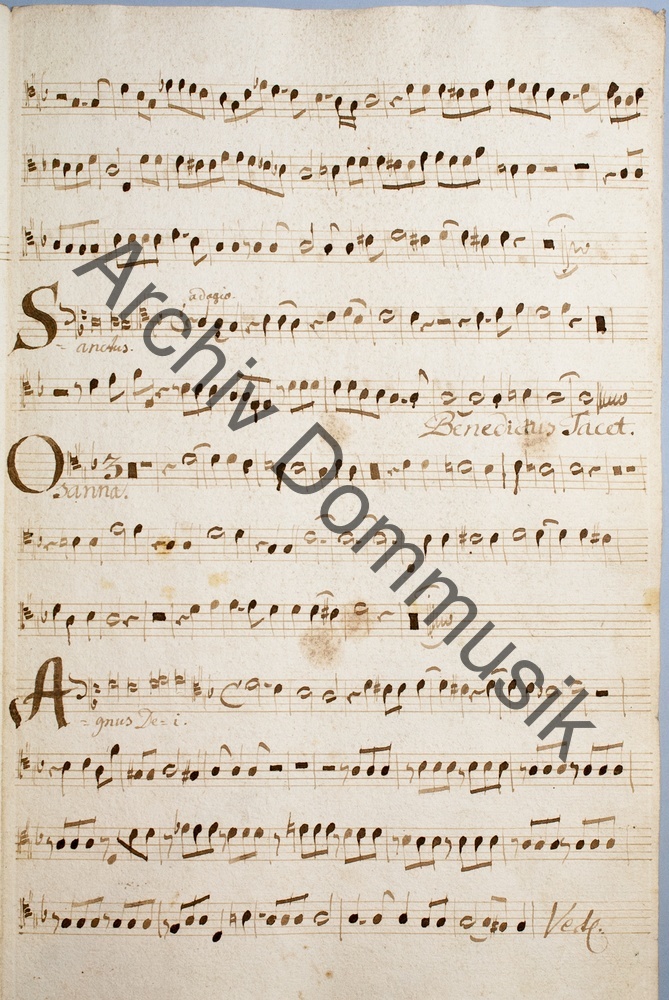 Sanctus.
adagio.
Benedictus Tacet.
Osanna.
3
Agnus De=i.
Archiv Dommusik